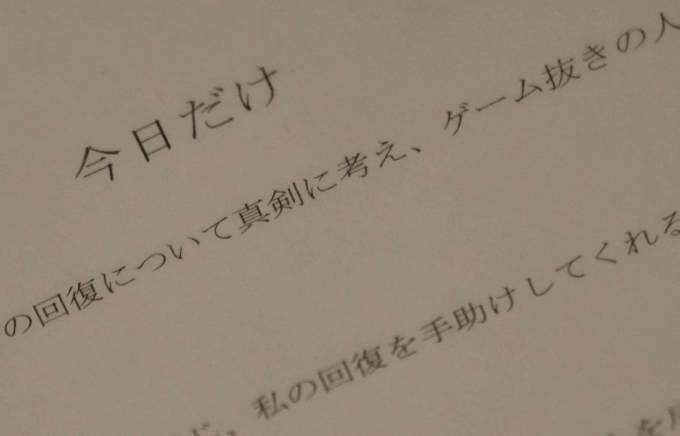 今日だけ
の回復について真剣に考え、ゲーム抜きの人
、私の回復を手助けしてくれる
を